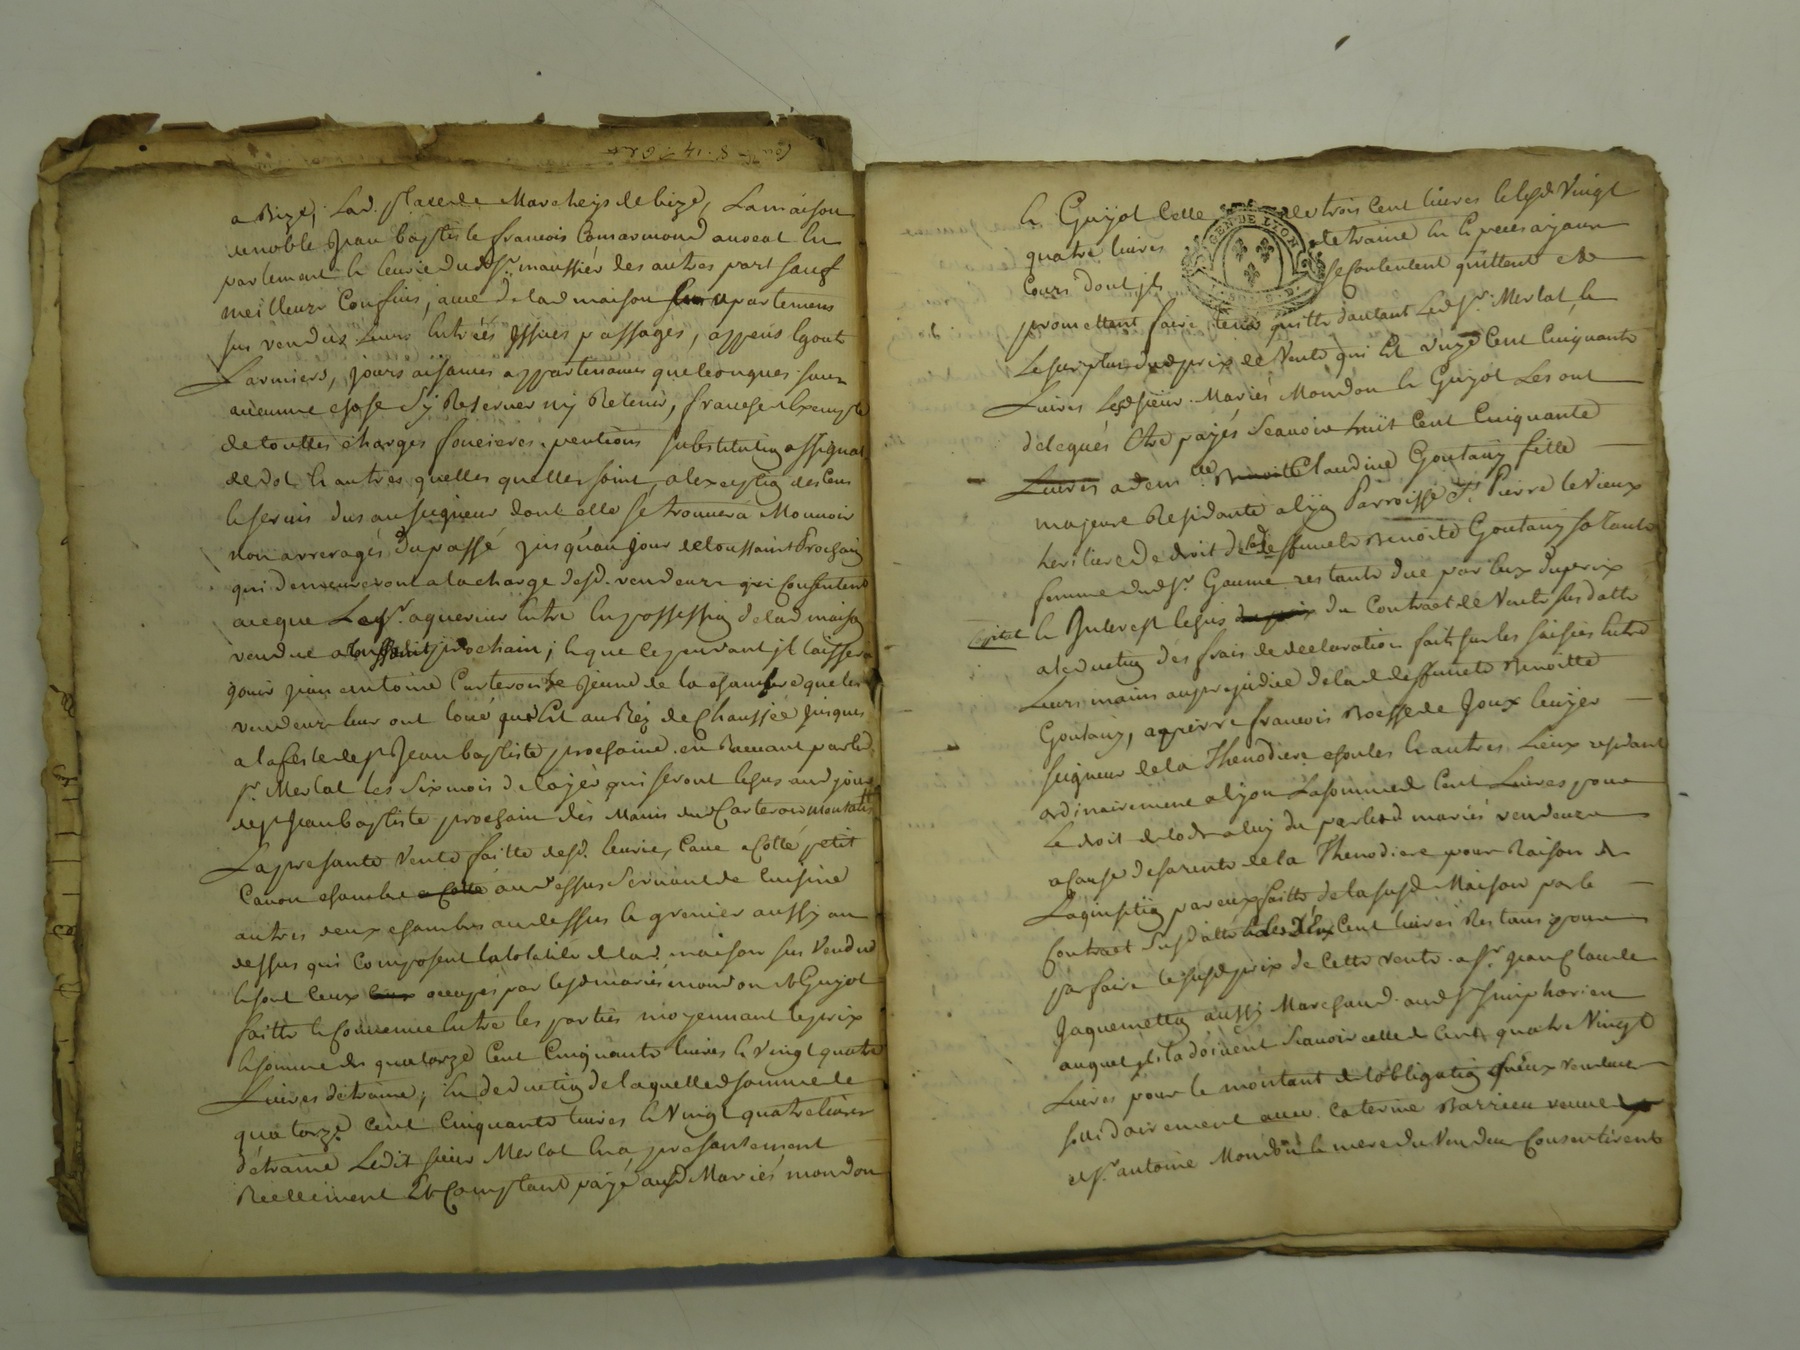 a Bize, Lad. place de Marcheys de bize, La maison
de noble Jean baptiste francois Consarmond avocat en
parlement & leurie dud. Sr. maussier des autres part sauf
meilleurs Confins, avec de lad maison apartemens
sus vendus Leurs entrées issues passages, appens Egout
Larmiers, jours aisances appartenances quelconques sans
aucune chose s'y Reserver ny Retenir, franche & Exempte
de touttes charges foncieres, pentions substitution assignat
de dot & autres quelles quelles soint, a lexception des Cens
& servis dus au seigneur dont elle se trouvera Mouvoir
non arreragés du passé jusqu'au jour de toussaint Prochain
qui demeureront a la charge desd. vendeurs qui Consentent
a ce que Led Sr. aquereur entre en possession de lad maison
vendue a toussaint prochain; & que ce pendant il laissera
jouir jean antoine Carteron le jeune de la chambre que les
vendeurs leur ont loué qui Est au Réz de Chaussée jusques
a la feste de st Jean baptiste prochaine en Recevant par led.
Sr. Merlat les six mois de loyer qui seront Echus aud jour
de st Jean baptiste prochain des Mains dud Carteron
La presante vente faitte desd. Ecurie, Cave a Cotté petit
Cavon chambre au dessus servant de Cuisine
autres deux chambres au dessus & grenier aussy au
dessus qui Composent la totalité de lad. maison sus vendue
& sont ceux occupés par lesd mariés mondon & Guyot
faitte & Convenue Entre les parties moyennant le prix
& somme de quatorze Cent Cinquante livres & vingt quatre
Livres détraine; En deduction de laquelle somme de
quatorze Cent Cinquante livres & Vingt quatre livres
détraine Ledit sieur Merlat En a presantement
Reellement & Comptant payé ausd Mariés mondon
& Guyot Celle de trois Cent livres & lesd Vingt
quatre livres detraine En Especes ayant
GEN DE LYON
Cours dont ils se Contentent quittent &
promettent faire tenir quitte d'autant Led Sr. Merlat, &
Le surplus dud prix de Vente qui Est onze Cent Cinquante
Livres Lesd sieur Mariés Mondon & Guyot Les ont
delegués Etre payés Scavoir huit Cent Cinquante
Livres a dem.lle Claudine Goutany fille
majeure Residante a lyon Parroisse St. Pierre le Vieux
heritiere de droit de lad deffunte Benoite Goutany sa tante
femme dud Sr Gaume restante due par Eux du prix
Capital & Interest Echus du Contract de Vente susd atte
a deduction des frais de declaration faits sur les saisies Entre
Leurs mains au prejudice de lad deffunte Benoitte
Goutany, a pierre francois Boesse de Joux Ecuyer
seigneur de la Thenodiere & autres Lieux residant
ordinairement a lyon La somme de Cent Livres pour
Le droit de lods a luy du par lesd mariés vendeurs
a Cause de sa rente de la Thenodiere pour Raison de
L'aquisition par eux faitte de la susd Maison par le
Contract susd atte & les deux Cent livres Restans pour
parfaire le susd prix de Cette vente a Sr. Jean Claude
Jaquemetton aussy Marchand aud St Simphorien
auquel ils la doivent Scavoir celle de Cent quatre Vingt
Livres pour le montant de l'obligation qu'eux vendeurs
solidairement avec Caterine Barrieu veuve
de Sr. antoine Mondon & mere du Vendeur Consentirent